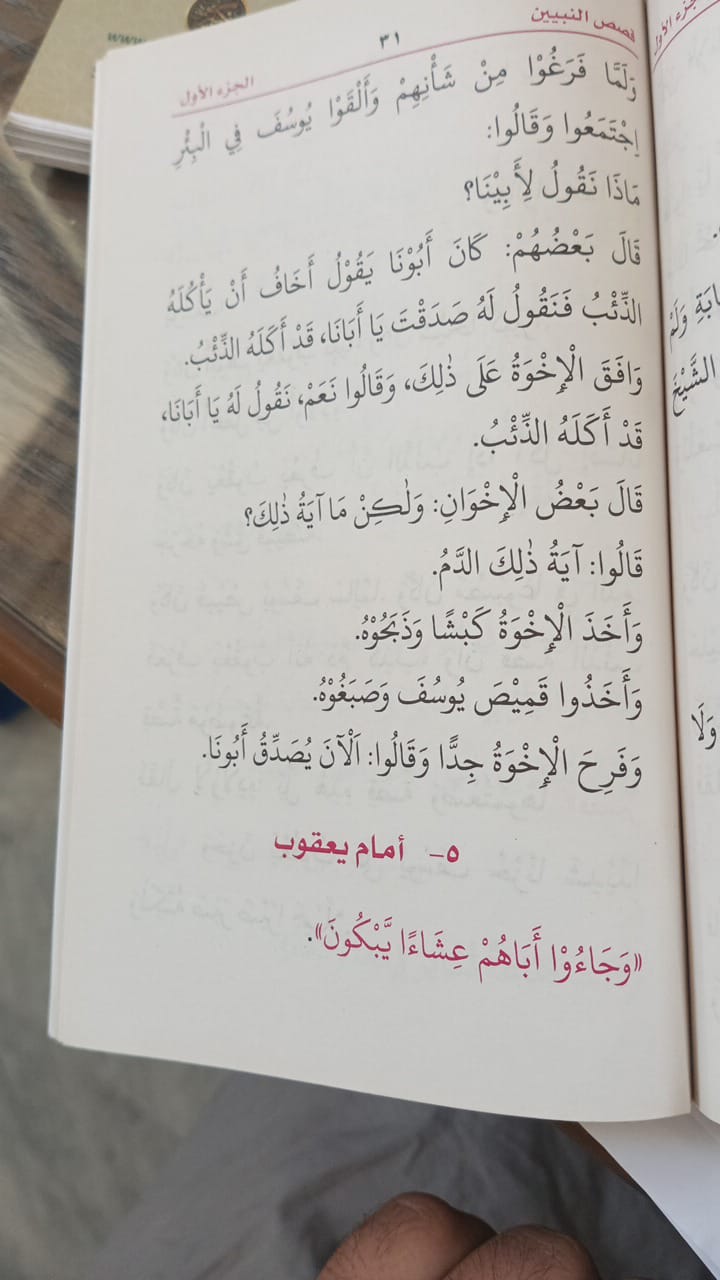 قصص النبيين
٣١
الجزء الأول
وَلَمَّا فَرَغُوْا مِنْ شَأْنِهِمْ وَأَلْقَوْا يُوسُفَ فِي الْبِئْرِ
اِجْتَمَعُوا وَقَالُوا:
مَاذَا نَقُولُ لِأَبِيْنَا؟
قَالَ بَعْضُهُمْ: كَانَ أَبُوْنَا يَقُوْلُ أَخَافُ أَنْ يَأْكُلَهُ
الذِّئْبُ فَنَقُولُ لَهُ صَدَقْتَ يَا أَبَانَا، قَدْ أَكَلَهُ الذِّئْبُ.
وَافَقَ الْإِخْوَةُ عَلَى ذٰلِكَ، وَقَالُوا نَعَمْ، نَقُولُ لَهُ يَا أَبَانَا،
قَدْ أَكَلَهُ الذِّئْبُ.
قَالَ بَعْضُ الْإِخْوَانِ: وَلٰكِنْ مَا آيَةُ ذٰلِكَ؟
قَالُوا: آيَةُ ذٰلِكَ الدَّمُ.
وَأَخَذَ الْإِخْوَةُ كَبْشًا وَذَبَحُوْهُ.
وَأَخَذُوا قَمِيْصَ يُوسُفَ وَصَبَغُوْهُ.
وَفَرِحَ الْإِخْوَةُ جِدًّا وَقَالُوا: اَلْآنَ يُصَدِّقُ أَبُونَا.
٥- أمام يعقوب
«وَجَاءُوْا أَبَاهُمْ عِشَاءًا يَّبْكُونَ».
وَلَمْ
الشَّيْخَ
وَلَا